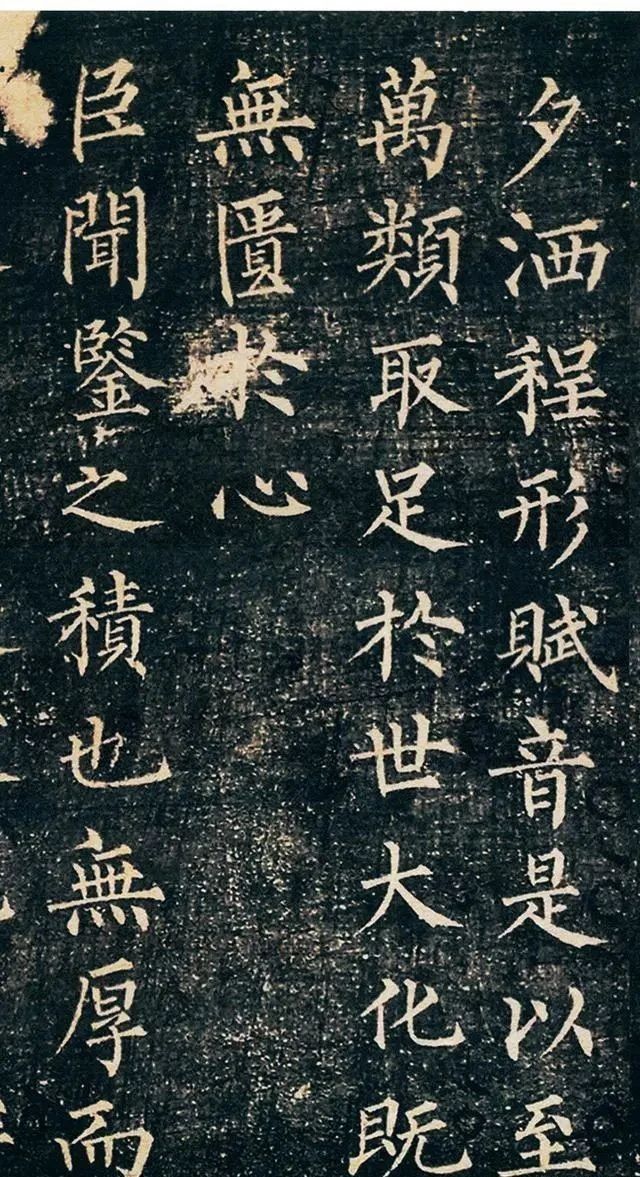 夕洒程形賦音是以至
萬類取足於世大化既
無匱於心
臣聞鑒之積也無厚而